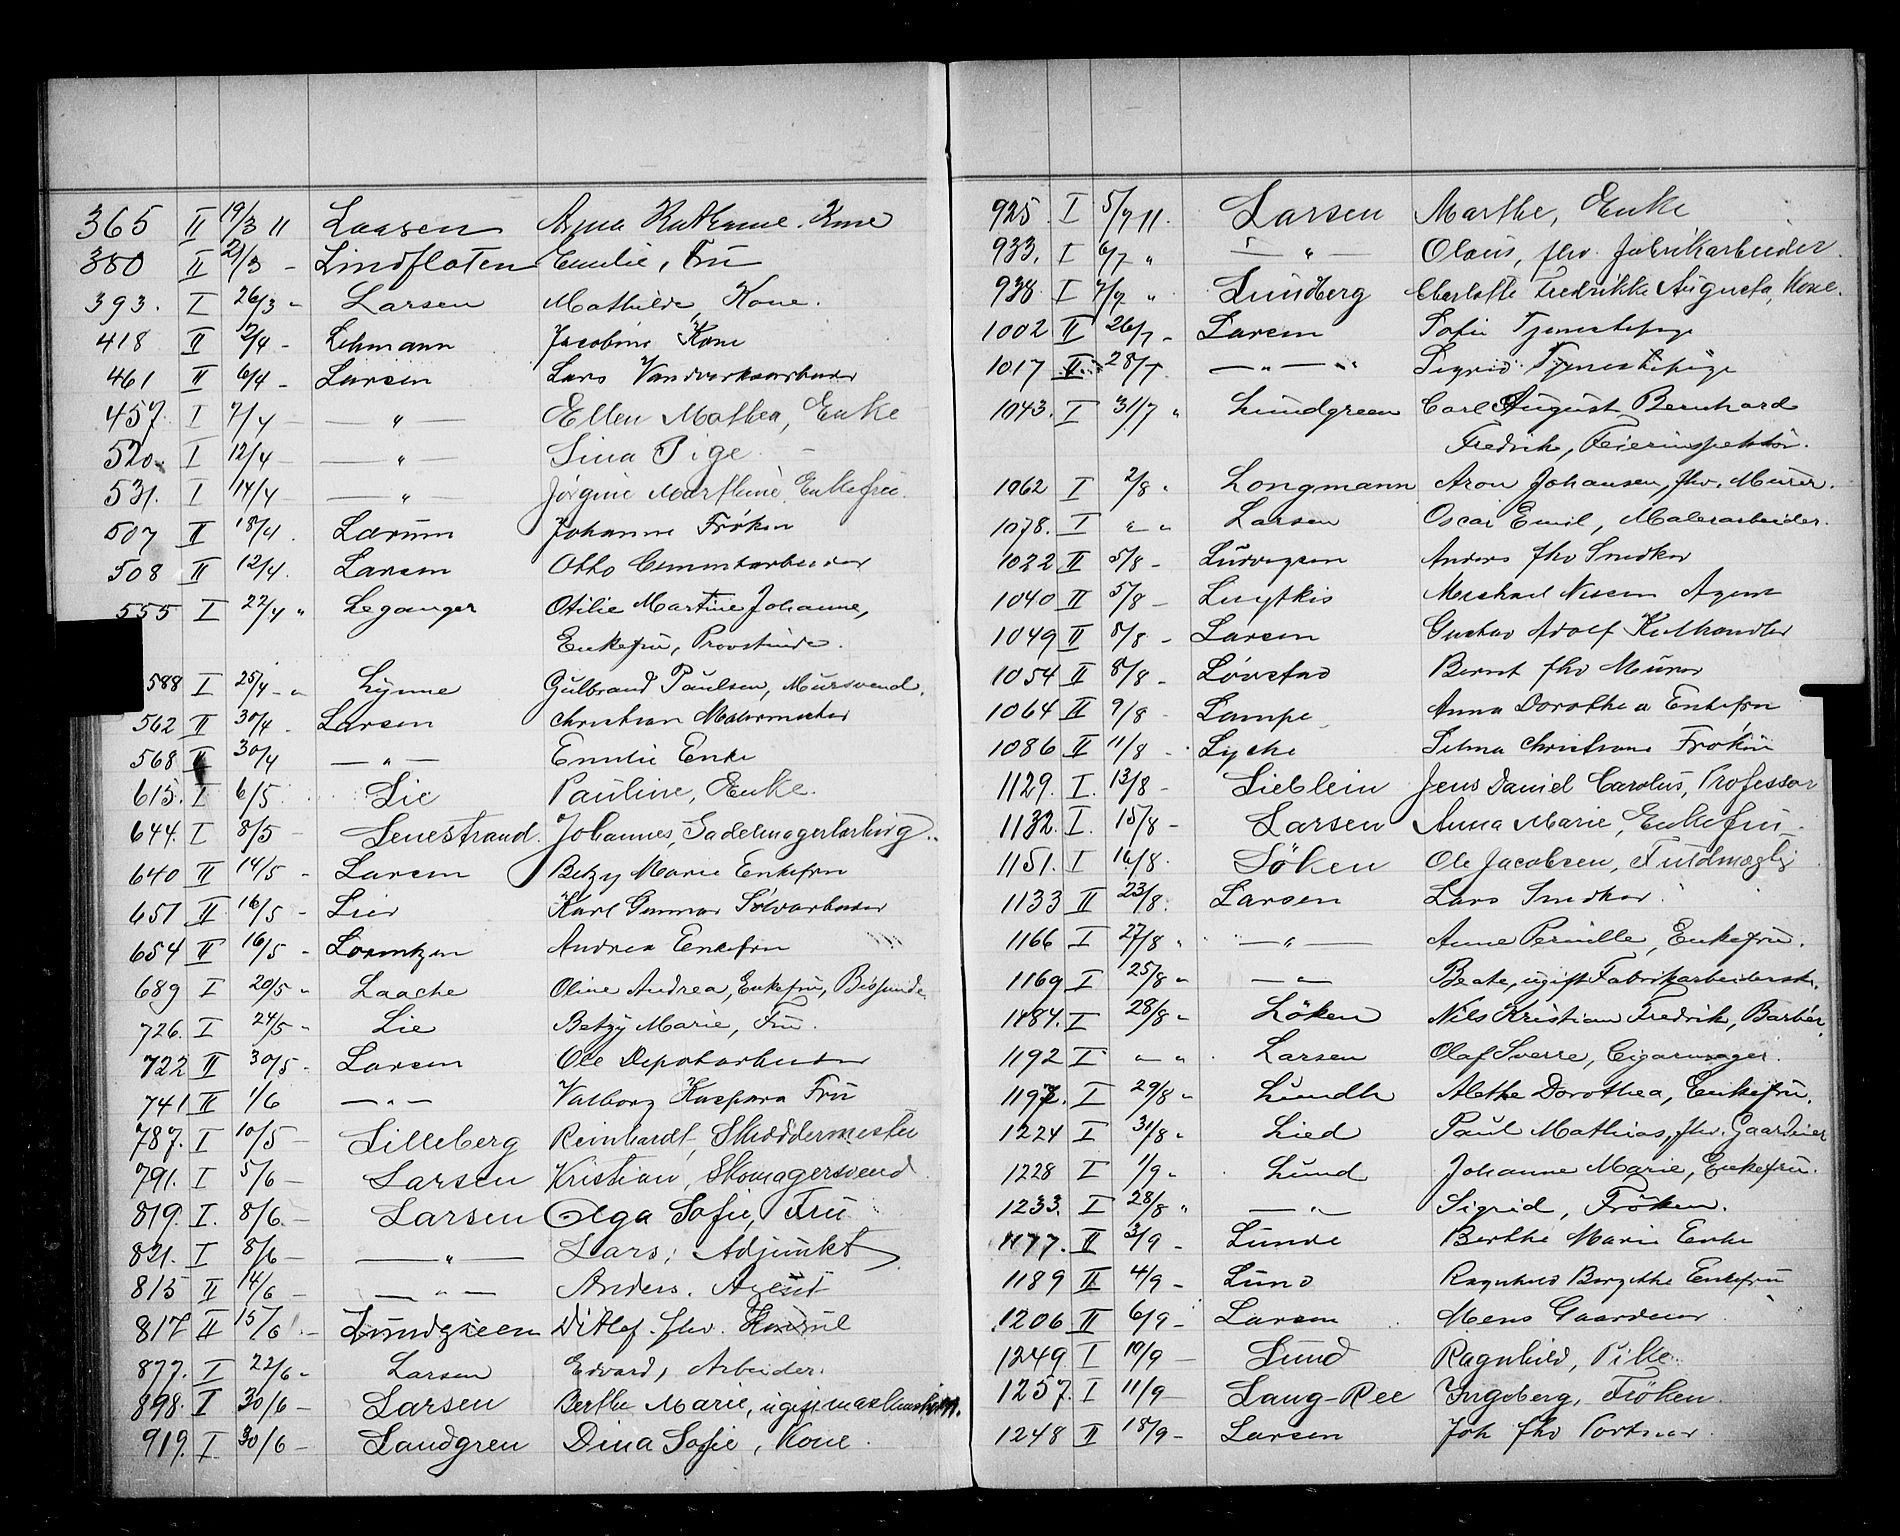 365 II 19/3 11 Laasen Anna Kathrine. Kone
380 II 21/3 - Lindfloten Emilie, Fru
393. I 26/3 " Larsen Mathilde, Kone.
418 II 2/4 - Lehmann Jacobine Kone
461 II 6/4 - Larsen Lars Vandverksarbeider
457. I 7/4 - — " — Ellen Mathea, Enke
520. I 12/4 — " — Lina Pige. -
531. I 14/4 - — " — Jørgine Marthine, Enkefru.
507 II 18/4. Lærum Johanne Frøken
508 II 12/4. Larsen Otto Cementarbeider
555 I 22/4 " Leganger Otilie Martine Johanne,
Enkefru, Provstinde.
588 I 25/4 - " Lynne Gulbrand Paulsen, Mursvend.
562 II 30/4 - Larsen Christian Malermester
568 II 30/4 — " — Emilie Enke
615. I 6/5. Lie Pauline, Enke.
644. I 8/5 - Lenestrand. Johannes, Sadelmagerlærling.
640 II 14/5 - Larsen Betzy Marie Enkefru
651 II 16/5 - Lier Karl Gunnar Sølvarbeider
654 II 16/5 - Lorentzen Andrea Enkefru
689 I 20/5 " Laache Oline Andrea, Enkefru, Bispinde
726. I 24/5 " Lie Betzy Marie, Fru.
722 II 30/5 - Larsen Ole Depotarbeider
741 II 1/6 — " — Valborg Kaspara Fru
787. I 10/5 - Lilleberg Reinhardt, Skræddermester
791. I 5/6 - Larsen Kristian, Skomagersvend
819. I. 8/6. - Larsen Olga Sofie, Fru
821. I 8/6 - — " — Lars, Adjunkt
815 II 14/6 - — " — Anders. Agent
817 II 15/6 - Lundgreen Ditlef. fhv.
877. I 22/6 " Larsen Edvard, Arbeider.
898. I 30/6 - Larsen Berthe Marie, ugift
919. I. 30/6 - Landgren Dina Sofie, Kone.
925. I 5/7 11. Larsen Marthe, Enke
933. I 6/7 " — " — Olaus, fhv. Fabrikarbeider.
938. I 7/7 " Lundberg Charlotte Fredrikke Augusta, Kone.
1002 II 26/7 - Larsen Sofie Tjenestepige
1017 II 28/7. — " — " Sigrid Tjenestepige
1043. I 31/7 " Lundgreen Carl August Bernhard
Fredrik, Feierinspektør.
1062 I 2/8 " Longmann Aron Johansen, fhv. Murer.
1078. I " " Larsen Oscar Emil, Malerarbeider.
1022 II 5/8 - Ludvigsen Anders fhv Snedker
1040 II 5/8 - Michael Nissen Agent
1049 II 8/8 - Larsen Gustav Adolf Kulhandler
1054 II 8/8 - Løvstad Bernt fhv Murer
1064 II 9/8 - Lampe Anna Dorothea Enkefru
1086 II 11/8 - Lyche Selma Christiane Frøken
1129. I. 13/8 - Lieblein Jens Daniel Carolus, Professor
1132. I. 15/8 - Larsen Anna Marie, Enkefru -
1151. I 16/8. Løken Ole Jacobsen, Fuldmægtig
1133 II 23/8. Larsen Lars Snedker
1166 I 27/8 " — " — Anne Pernille, Enkefru.
1169 I 25/8 " — " Beate, ugift Fabrikarbeiderske.
1184. I 28/8 " Løken Nils Kristian Fredrik, Barbér.
1192 I " " Larsen Olaf Sverre, Cigarmager.
1197. I 29/8 " Lundh Alethe Dorothea, Enkefru.
1224 I 31/8 " Lied Paul Mathias, fhv. Gaardeier
1228 I 1/9 " Lund Johanne Marie, Enkefru.
1233. I 28/8 " — " Sigrid, Frøken.
1177. II 3/9 - Lunde Berthe Marie Enke
1189 II 4/9 - Lund Ragnhild Bergithe Enkefru
1206 II 6/9 - Larsen Mens Gaardeier
1249. I 10/9 - Lund Ragnhild, Pike.
1257. I 11/9 - Lang-Ree Ingeborg, Frøken.
1248 II 18/9 - Larsen Joh fhv Portner.